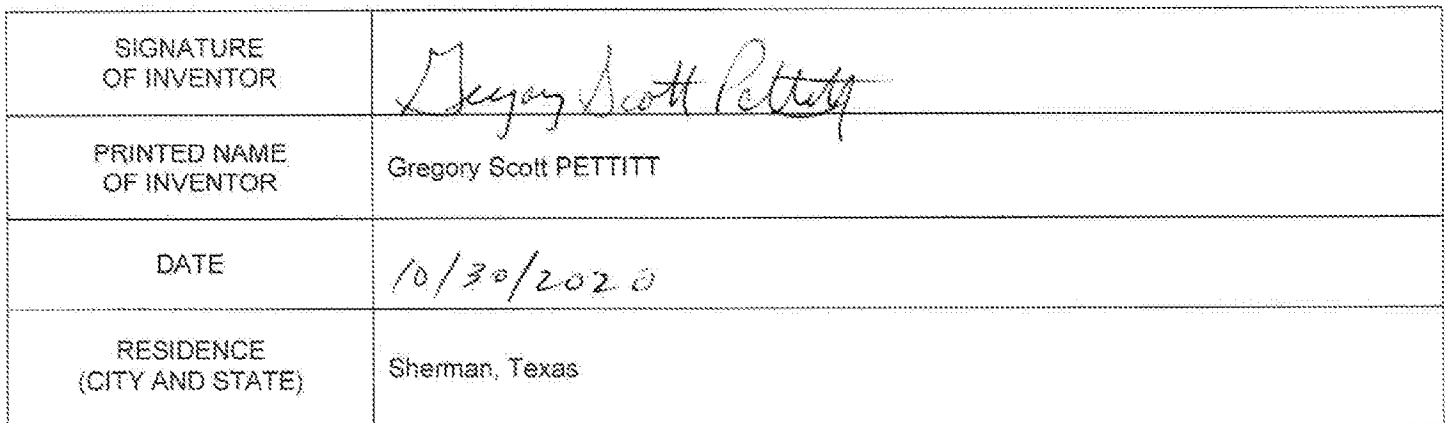 SIGNATURE
OF INVENTOR
Gregory Scott Pettitt
PRINTED NAME
OF INVENTOR
Gregory Scott PETTITT
DATE
10/30/2020
RESIDENCE
(CITY AND STATE)
Sherman, Texas